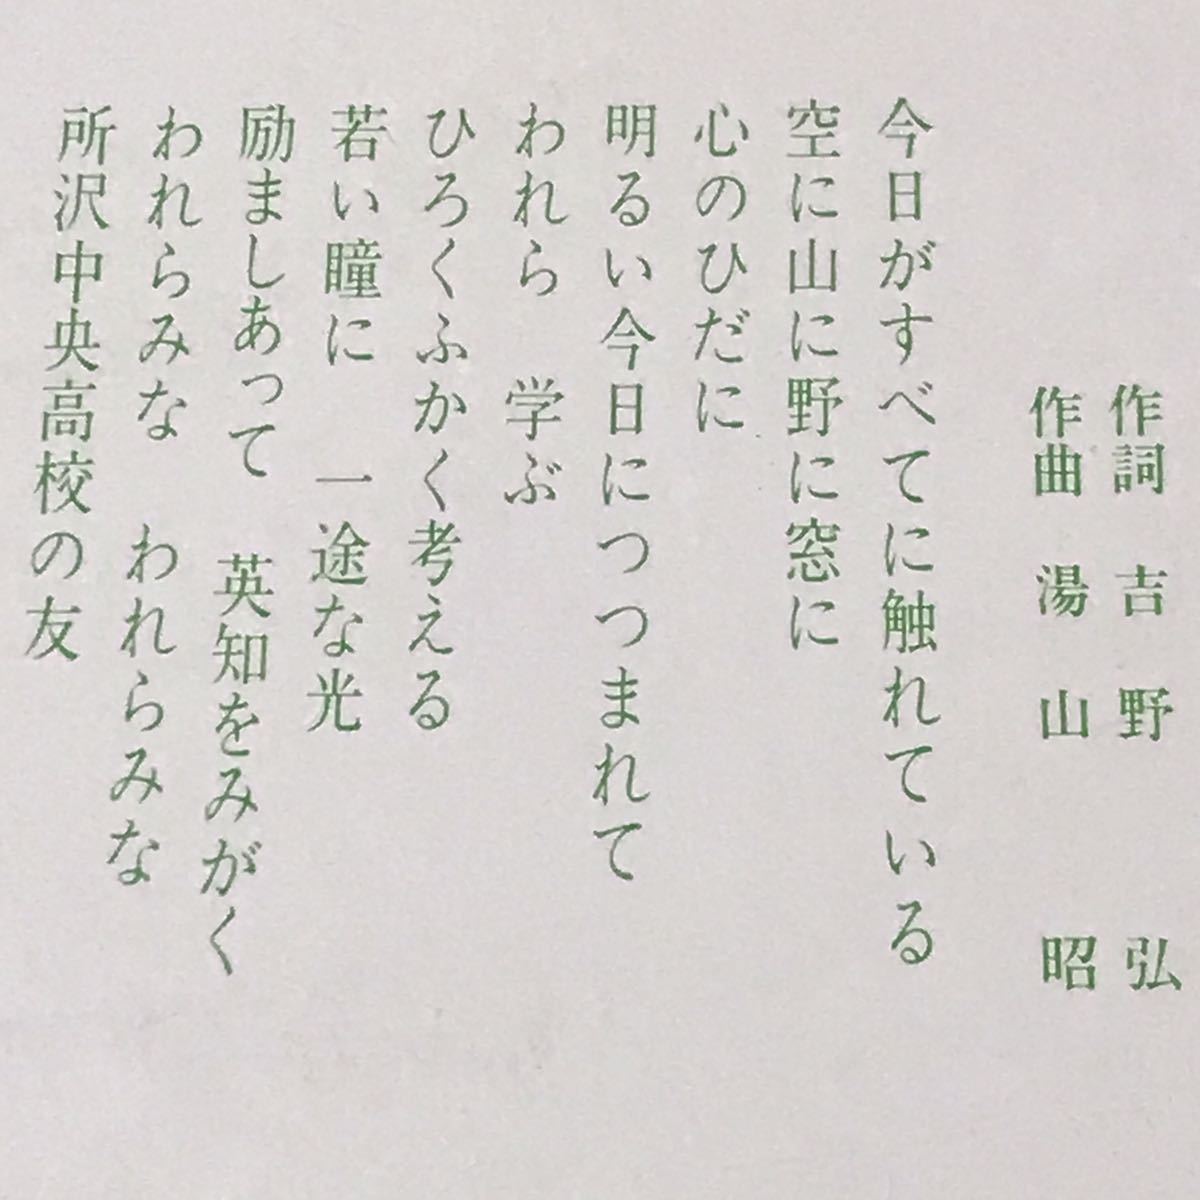 作詞 吉野 弘
作曲 湯山 昭
今日がすべてに触れている
空に山に野に窓に
心のひだに
明るい今日につつまれて
われら 学ぶ
ひろくふかく考える
若い瞳に 一途な光
励ましあって 英知をみがく
われらみな われらみな
所沢中央高校の友